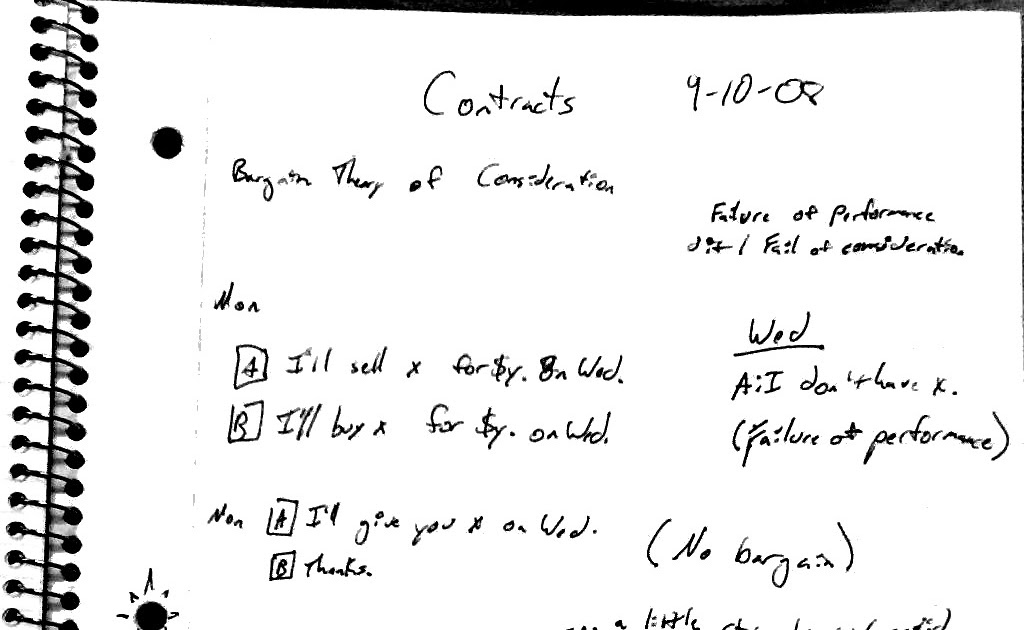 Contracts 9-10-08
Bargain Theory of Consideration
Failure of performance
dif / Fail of consideration
Mon
A I'll sell x for $y. on Wed.
B I'll buy x for $y. on Wed.
Wed
A: I don't have x.
(Failure of performance)
Mon A I'll give you x on Wed.
B Thanks.
(No bargain)
a little